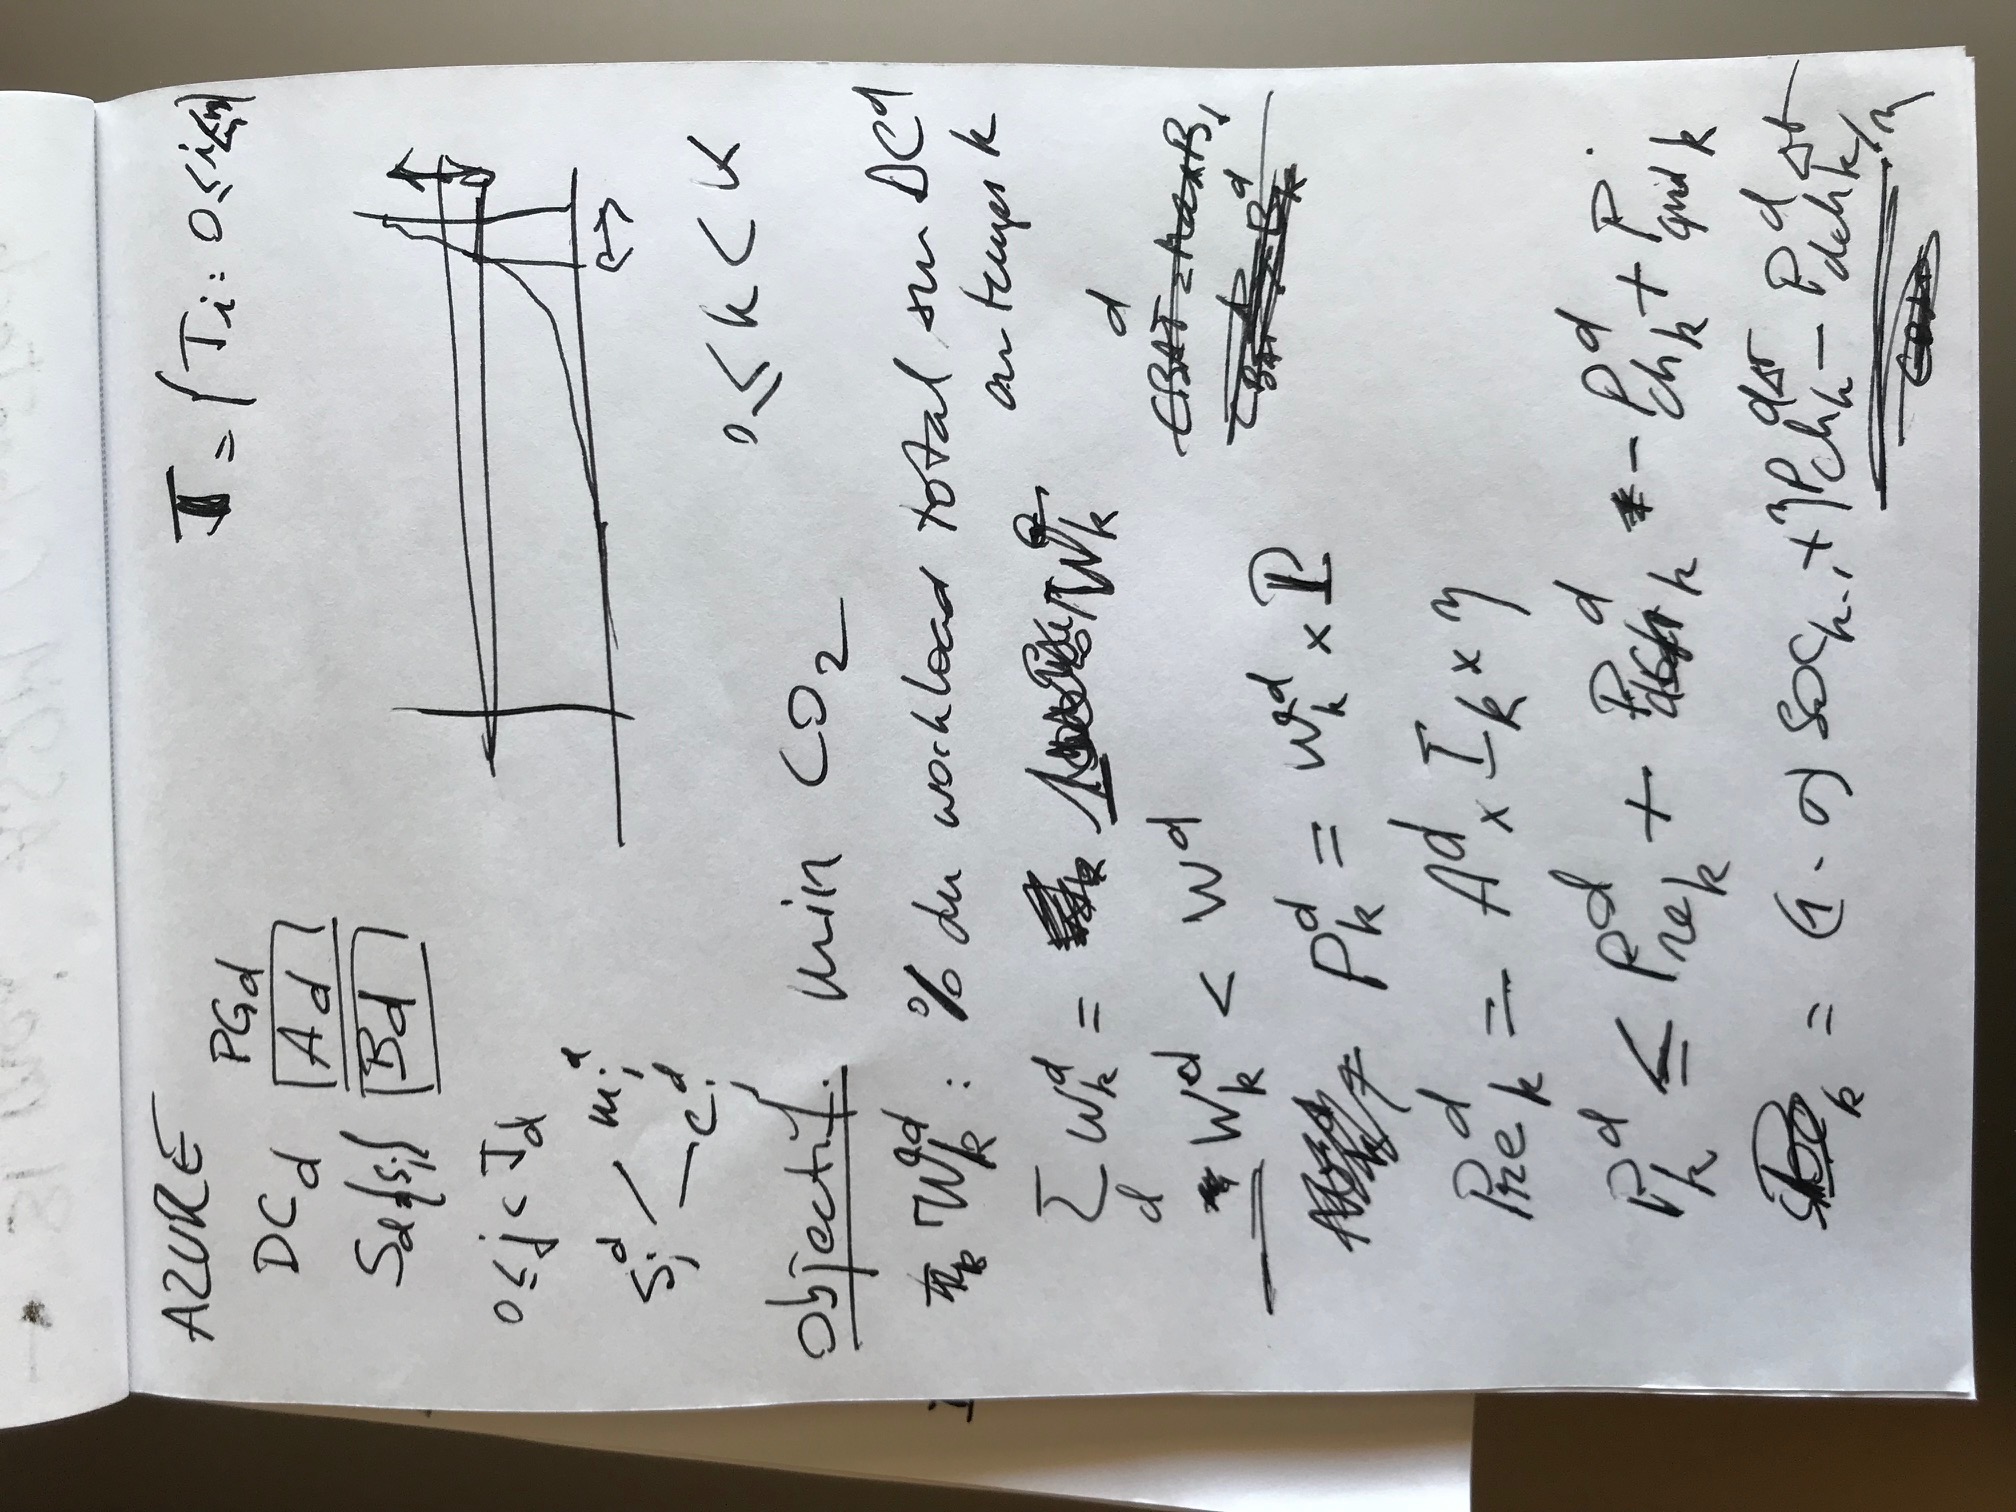 AZURE
𝕋 = { T_i : 0 ≤ i
PG_d
DC_d
A_d
S_d {s_j}
B_d
0 ≤ j < J_d
S_j^d
m_j^d
c_j^d
0 ≤ k < K
Objectif. min CO₂
W_k^d : % du workload total sur DC^d
au temps k
Σ_d W_k^d = W_k
W_k^d < W^d
d
P_k^d = W_k^d × P
Pre_k^d = A^d × I_k × η
P_k^d ≤ P_re_k^d + P_dch_k^d - P_ch_k^d + P_grid_k
soc_k = (1 - σ) SOC_k-1 + η P_ch_k^d Δt - P_dch_k^d Δt / η